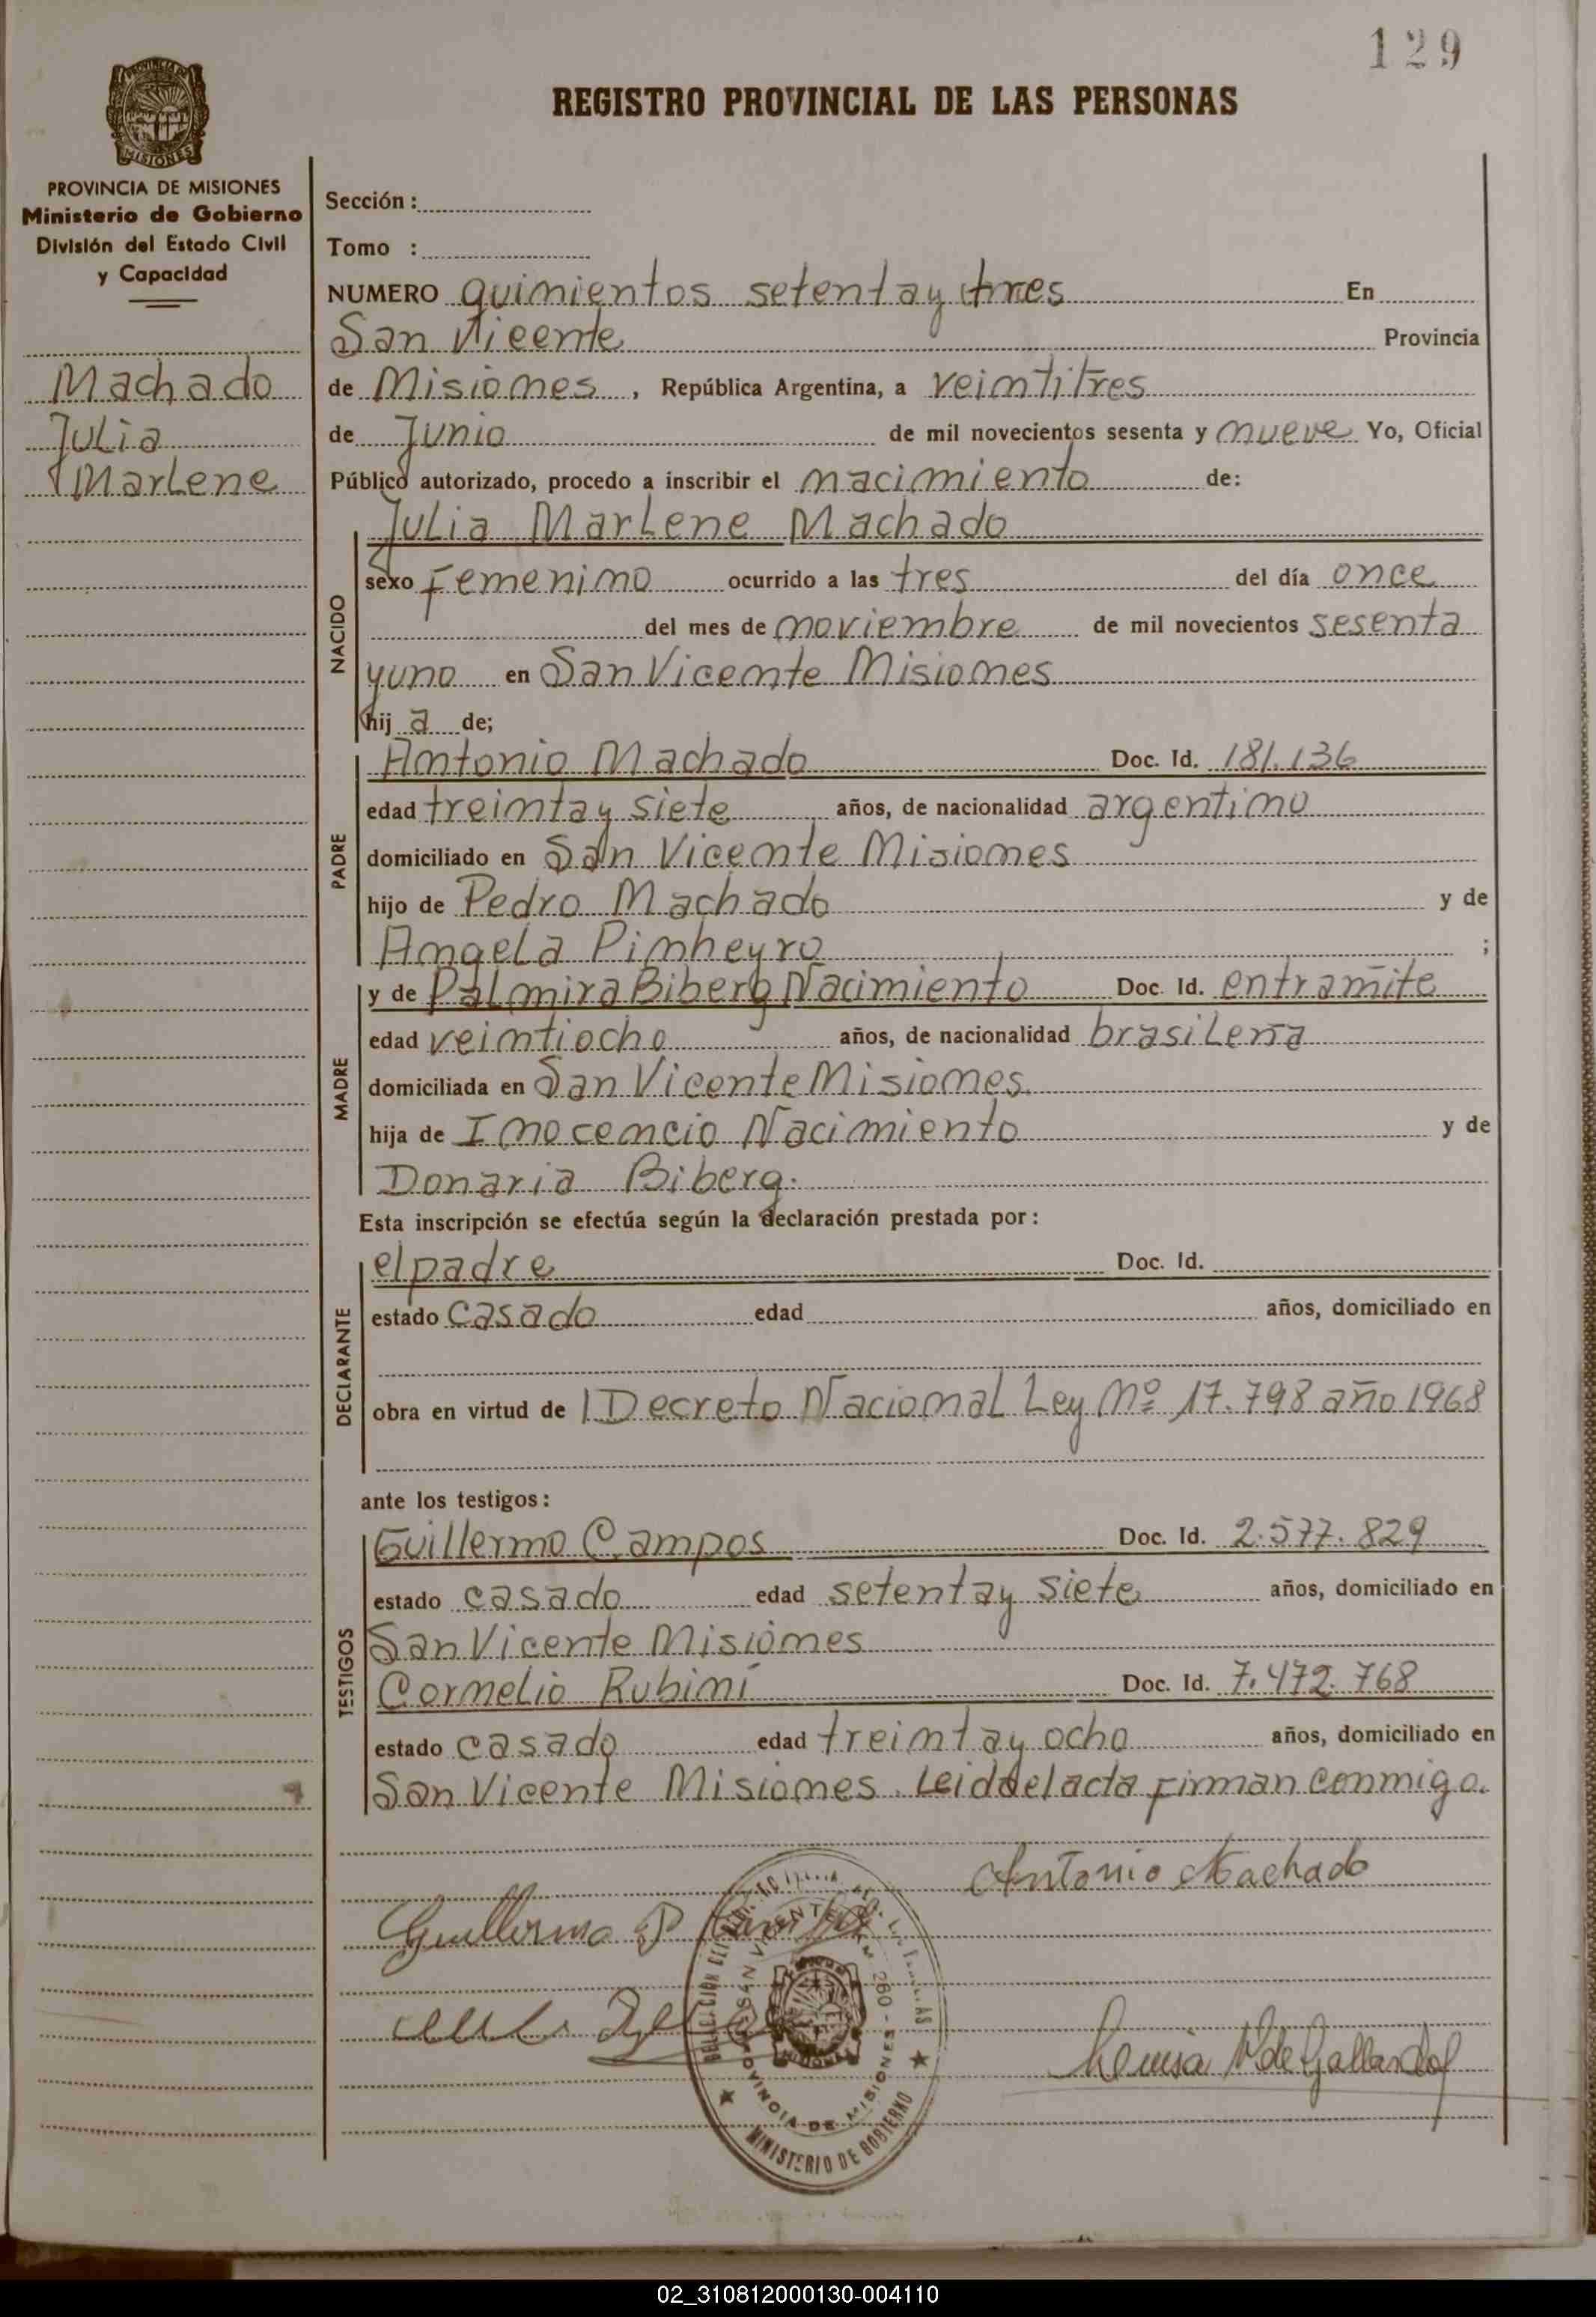 129
REGISTRO PROVINCIAL DE LAS PERSONAS
MISIONES
PROVINCIA DE MISIONES
Ministerio de Gobierno
División del Estado Civil
y Capacidad
Machado
Julia
Marlene
Sección :
Tomo :
NUMERO quinientos setenta y tres En
San Vicente Provincia
de Misiones , República Argentina, a veintitres
de Junio de mil novecientos sesenta y nueve Yo, Oficial
Público autorizado, procedo a inscribir el nacimiento de:
Julia Marlene Machado
NACIDO
sexo Femenino ocurrido a las tres del día once
del mes de noviembre de mil novecientos sesenta
y uno en San Vicente Misiones
hij a de;
PADRE
Antonio Machado Doc. Id. 181.136
edad treinta y siete años, de nacionalidad argentino
domiciliado en San Vicente Misiones
hijo de Pedro Machado y de
Angela Pinheyro ;
MADRE
y de Palmira Biberg Nacimiento Doc. Id. en tramite
edad veintiocho años, de nacionalidad brasileña
domiciliada en San Vicente Misiones
hija de Inocencio Nacimiento y de
Donaria Biberg.
Esta inscripción se efectúa según la declaración prestada por :
DECLARANTE
el padre Doc. Id.
estado casado edad años, domiciliado en
obra en virtud de Decreto Nacional Ley Nº 17.798 año 1968
ante los testigos :
TESTIGOS
Guillermo Campos Doc. Id. 2.577.829
estado casado edad setenta y siete años, domiciliado en
San Vicente Misiones
Cornelio Rubini Doc. Id. 7.472.768
estado casado edad treinta y ocho años, domiciliado en
San Vicente Misiones. Leida el acta firman conmigo.
Antonio Machado
Guillermo P
de Gallardo
SAN VICENTE
260
MISIONES
PROVINCIA DE MISIONES
MINISTERIO DE GOBIERNO
02_310812000130-004110